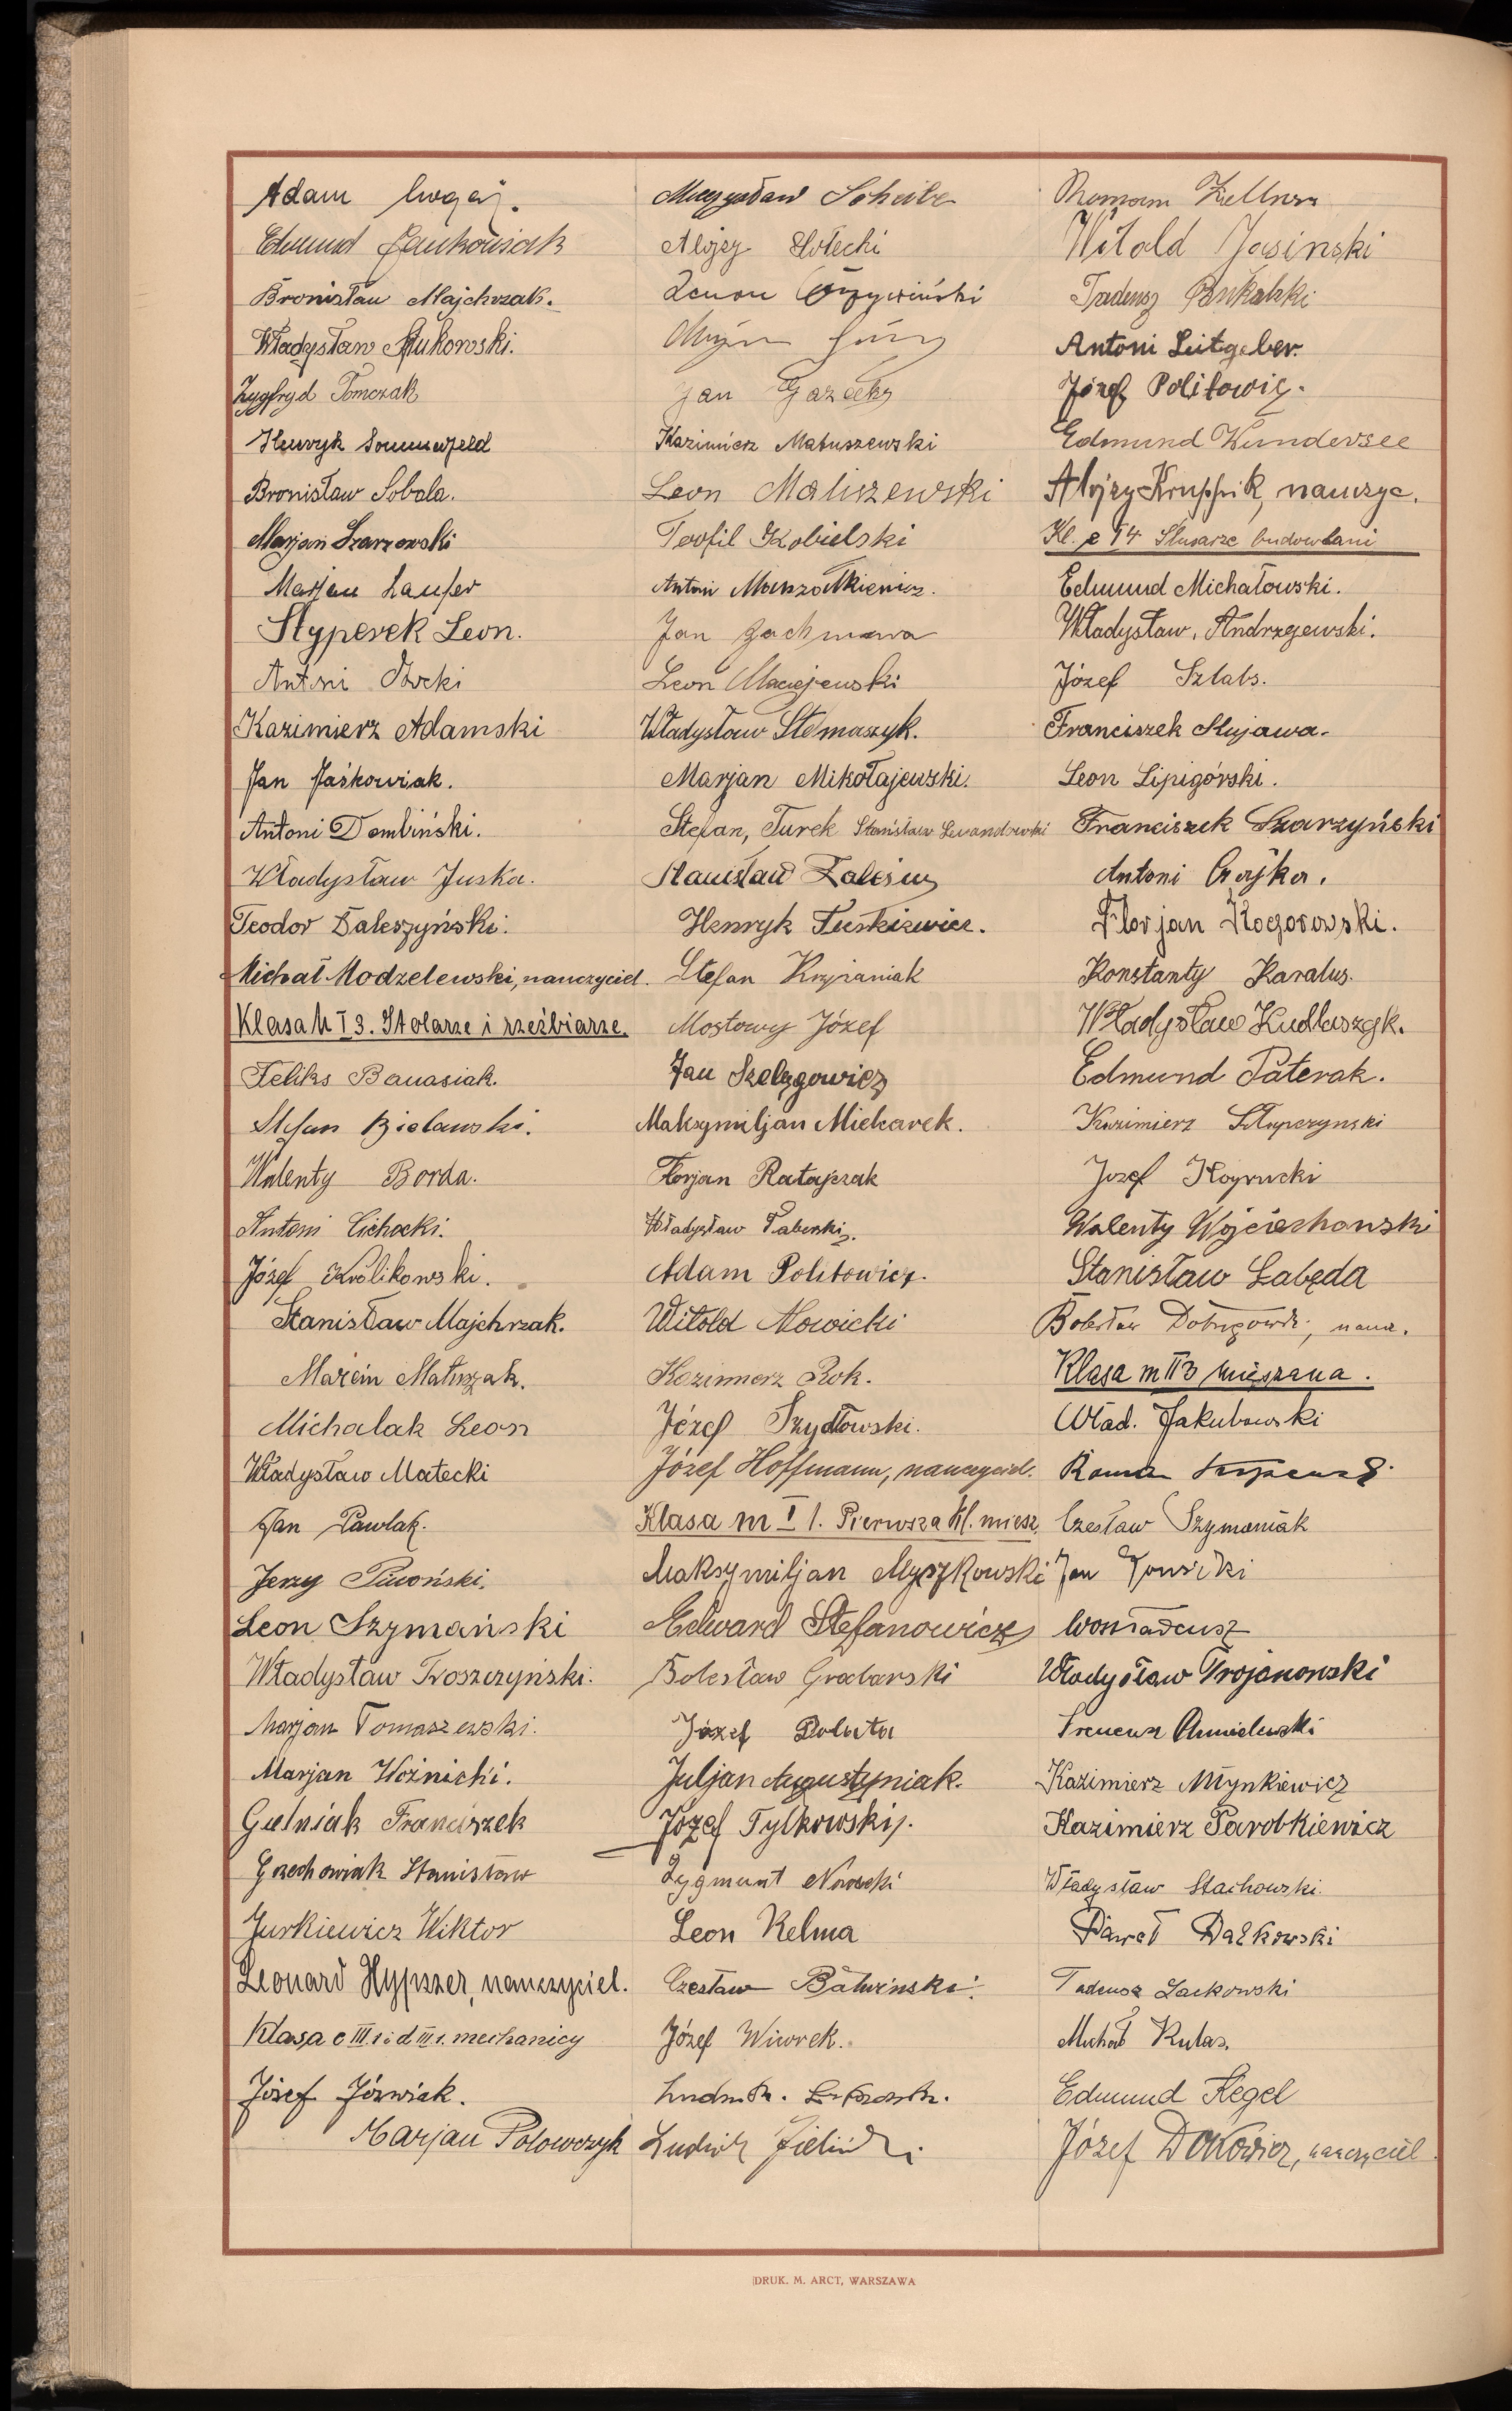 Adam
Edmund Jankowiak
Bronisław Majchrzak.
Władysław Żukowski.
Zygfryd Tomczak
Henryk Sommerfeld
Bronisław Sobala.
Marjan Szarzewski
Marjan Laufer
Styperek Leon.
Antoni
Kazimierz Adamski
Jan Jaśkowiak.
Antoni Dembiński.
Władysław Juska.
Teodor Daleszyński.
Michał Modzelewski, nauczyciel.
Klasa h I 3. Stolarze i rzeźbiarze.
Feliks Banasiak.
Stefan Bielawski.
Walenty Borda.
Antoni Cichocki.
Józef Królikowski.
Stanisław Majchrzak.
Marcin Matuszak.
Michalak Leon
Władysław Małecki
Jan Pawlak.
Jerzy Piwoński.
Leon Szymański
Władysław Troszczyński.
Marjan Tomaszewski.
Marjan Woźnicki.
Gielniak Franciszek
Grzechowiak Stanisław
Jurkiewicz Wiktor
Leonard Hypszer, nauczyciel.
Klasa c III 1 i d III 1. mechanicy
Józef Jóźwiak.
Marjan Polowczyk
Mieczysław Scheibe
Alojzy
Zenon
Jan
Kazimierz Matuszewski
Leon Maliszewski
Teofil Kobielski
Antoni Marszałkiewicz.
Jan Zachmara
Leon Maciejewski
Władysław Stemaszyk.
Marjan Mikołajewski.
Stefan, Turek Stanisław Lewandowski
Stanisław
Henryk Tuskiewicz.
Stefan Krzyżaniak
Mostowy Józef
Jan Szelągowicz
Maksymiljan Mielcarek.
Florjan Ratajczak
Władysław Taberski.
Adam Politowicz.
Witold Nowicki
Kazimierz Rok.
Józef Szydłowski.
Józef Hoffmann, nauczyciel.
Klasa m I 1. Pierwsza kl. miesz.
Maksymiljan Myszkowski
Edward Stefanowicz
Bolesław Grabarski
Józef
Juljan Augustyniak.
Józef Tylkowski.
Zygmunt Nowacki
Leon Kelma
Czesław Batwinski.
Józef Wiwrek.
Ludwik Zieliński
Roman Zellner
Witold Jasinski
Tadeusz
Antoni Leitgeber.
Józef Politowicz.
Edmund Wundersee
Alojzy Kruppik, nauczyc.
Kl. e I 4 Ślusarze budowlani
Edmund Michałowski.
Władysław, Andrzejewski.
Józef Sztabs.
Franciszek Kujawa.
Leon Lipigórski.
Franciszek Skarzyński
Antoni Czajka.
Florjan Kogorowski.
Konstanty Karalus.
Władysław Kudlaszyk.
Edmund Paterak.
Kazimierz Słupczynski
Józef
Walenty Wojciechowski
Stanisław Łabęda
Bolesław naucz.
Klasa m II 3 mieszana.
Wład. Jakubowski
Roman
Czesław Szymaniak
Jan
Woś Tadeusz
Władysław Trojanowski
Ireneusz Chmielewski
Kazimierz Młynkiewicz
Kazimierz Parobkiewicz
Władysław Stachowski.
Paweł Dałkowski
Tadeusz Laskowski
Michał Kulas.
Edmund Kegel
Józef Dokowicz, nauczyciel
DRUK. M. ARCT, WARSZAWA